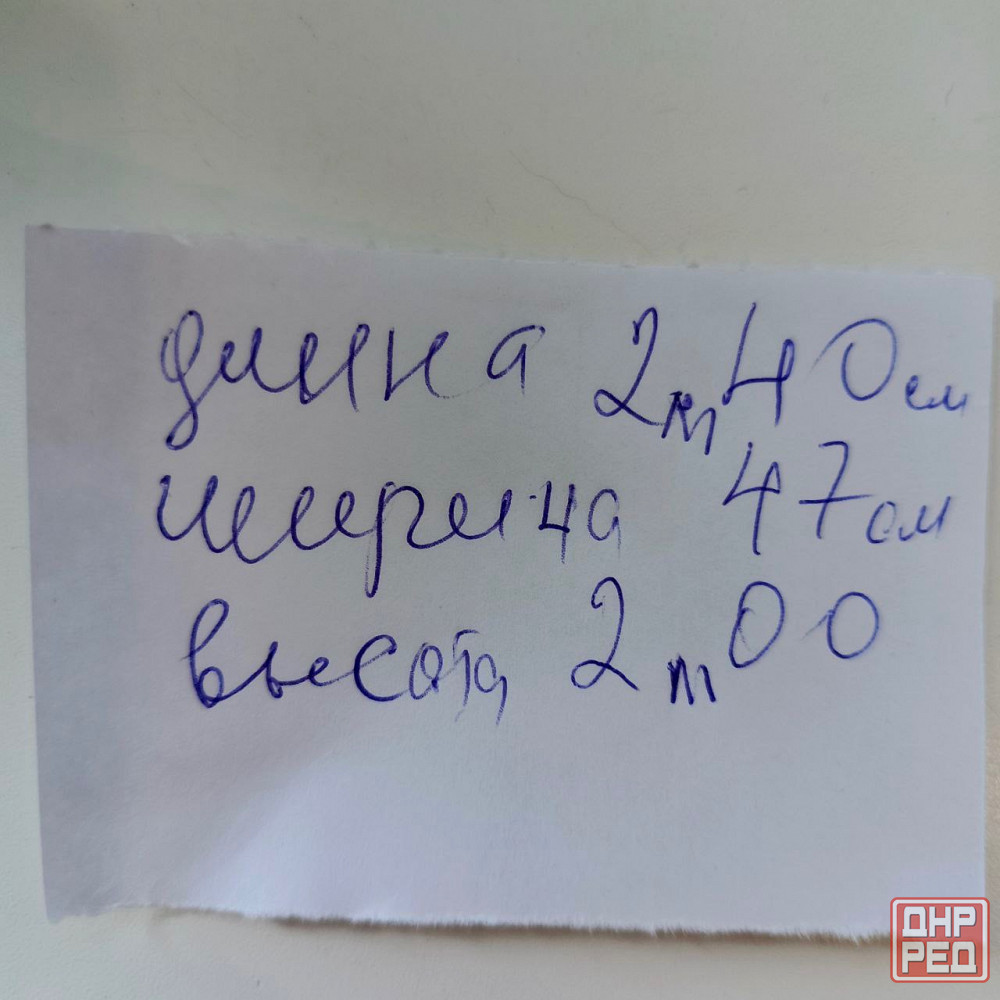 длина 2m 40см
ширина 47см
высота 2m 00
ДНР
РЕД